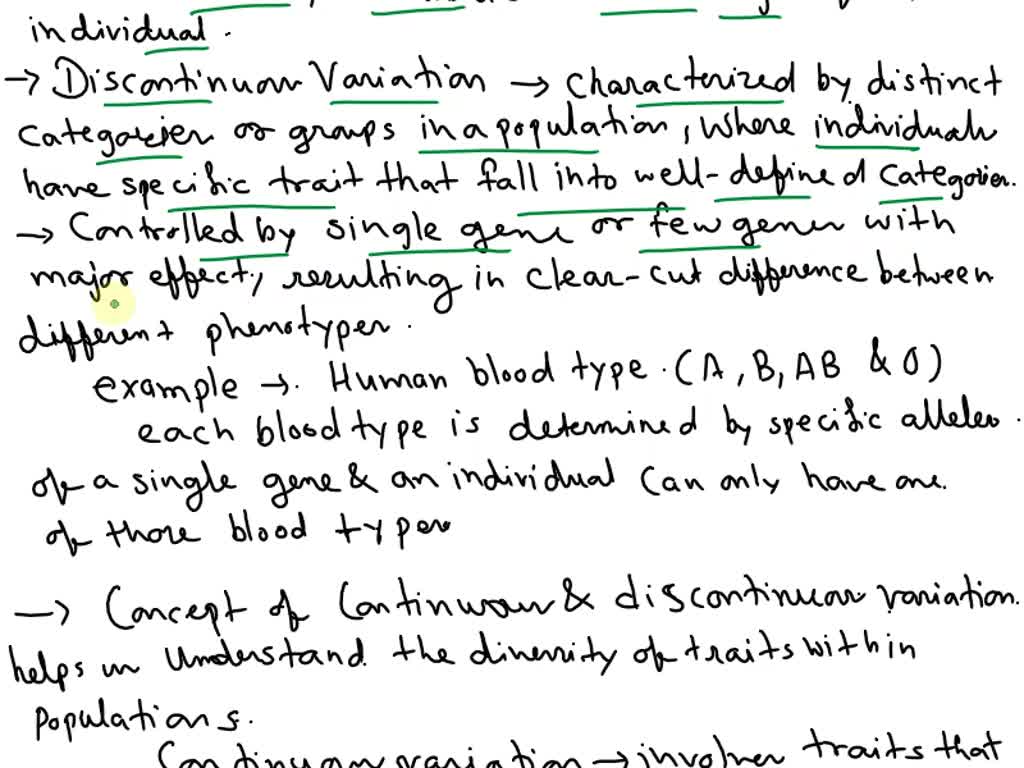 individual.
→ Discontinuous Variation → Characterized by distinct
categories or groups in a population, where individuals
have specific trait that fall into well-defined categories.
→ Controlled by single gene or few genes with
major effect, resulting in clear-cut difference between
different phenotypes.
example →. Human blood type. (A, B, AB & O)
each blood type is determined by specific alleles.
of a single gene & an individual can only have one.
of those blood types
→ Concept of Continuous & discontinuous variation.
helps in understand the diversity of traits within
populations.
Continuous variation → involves traits that